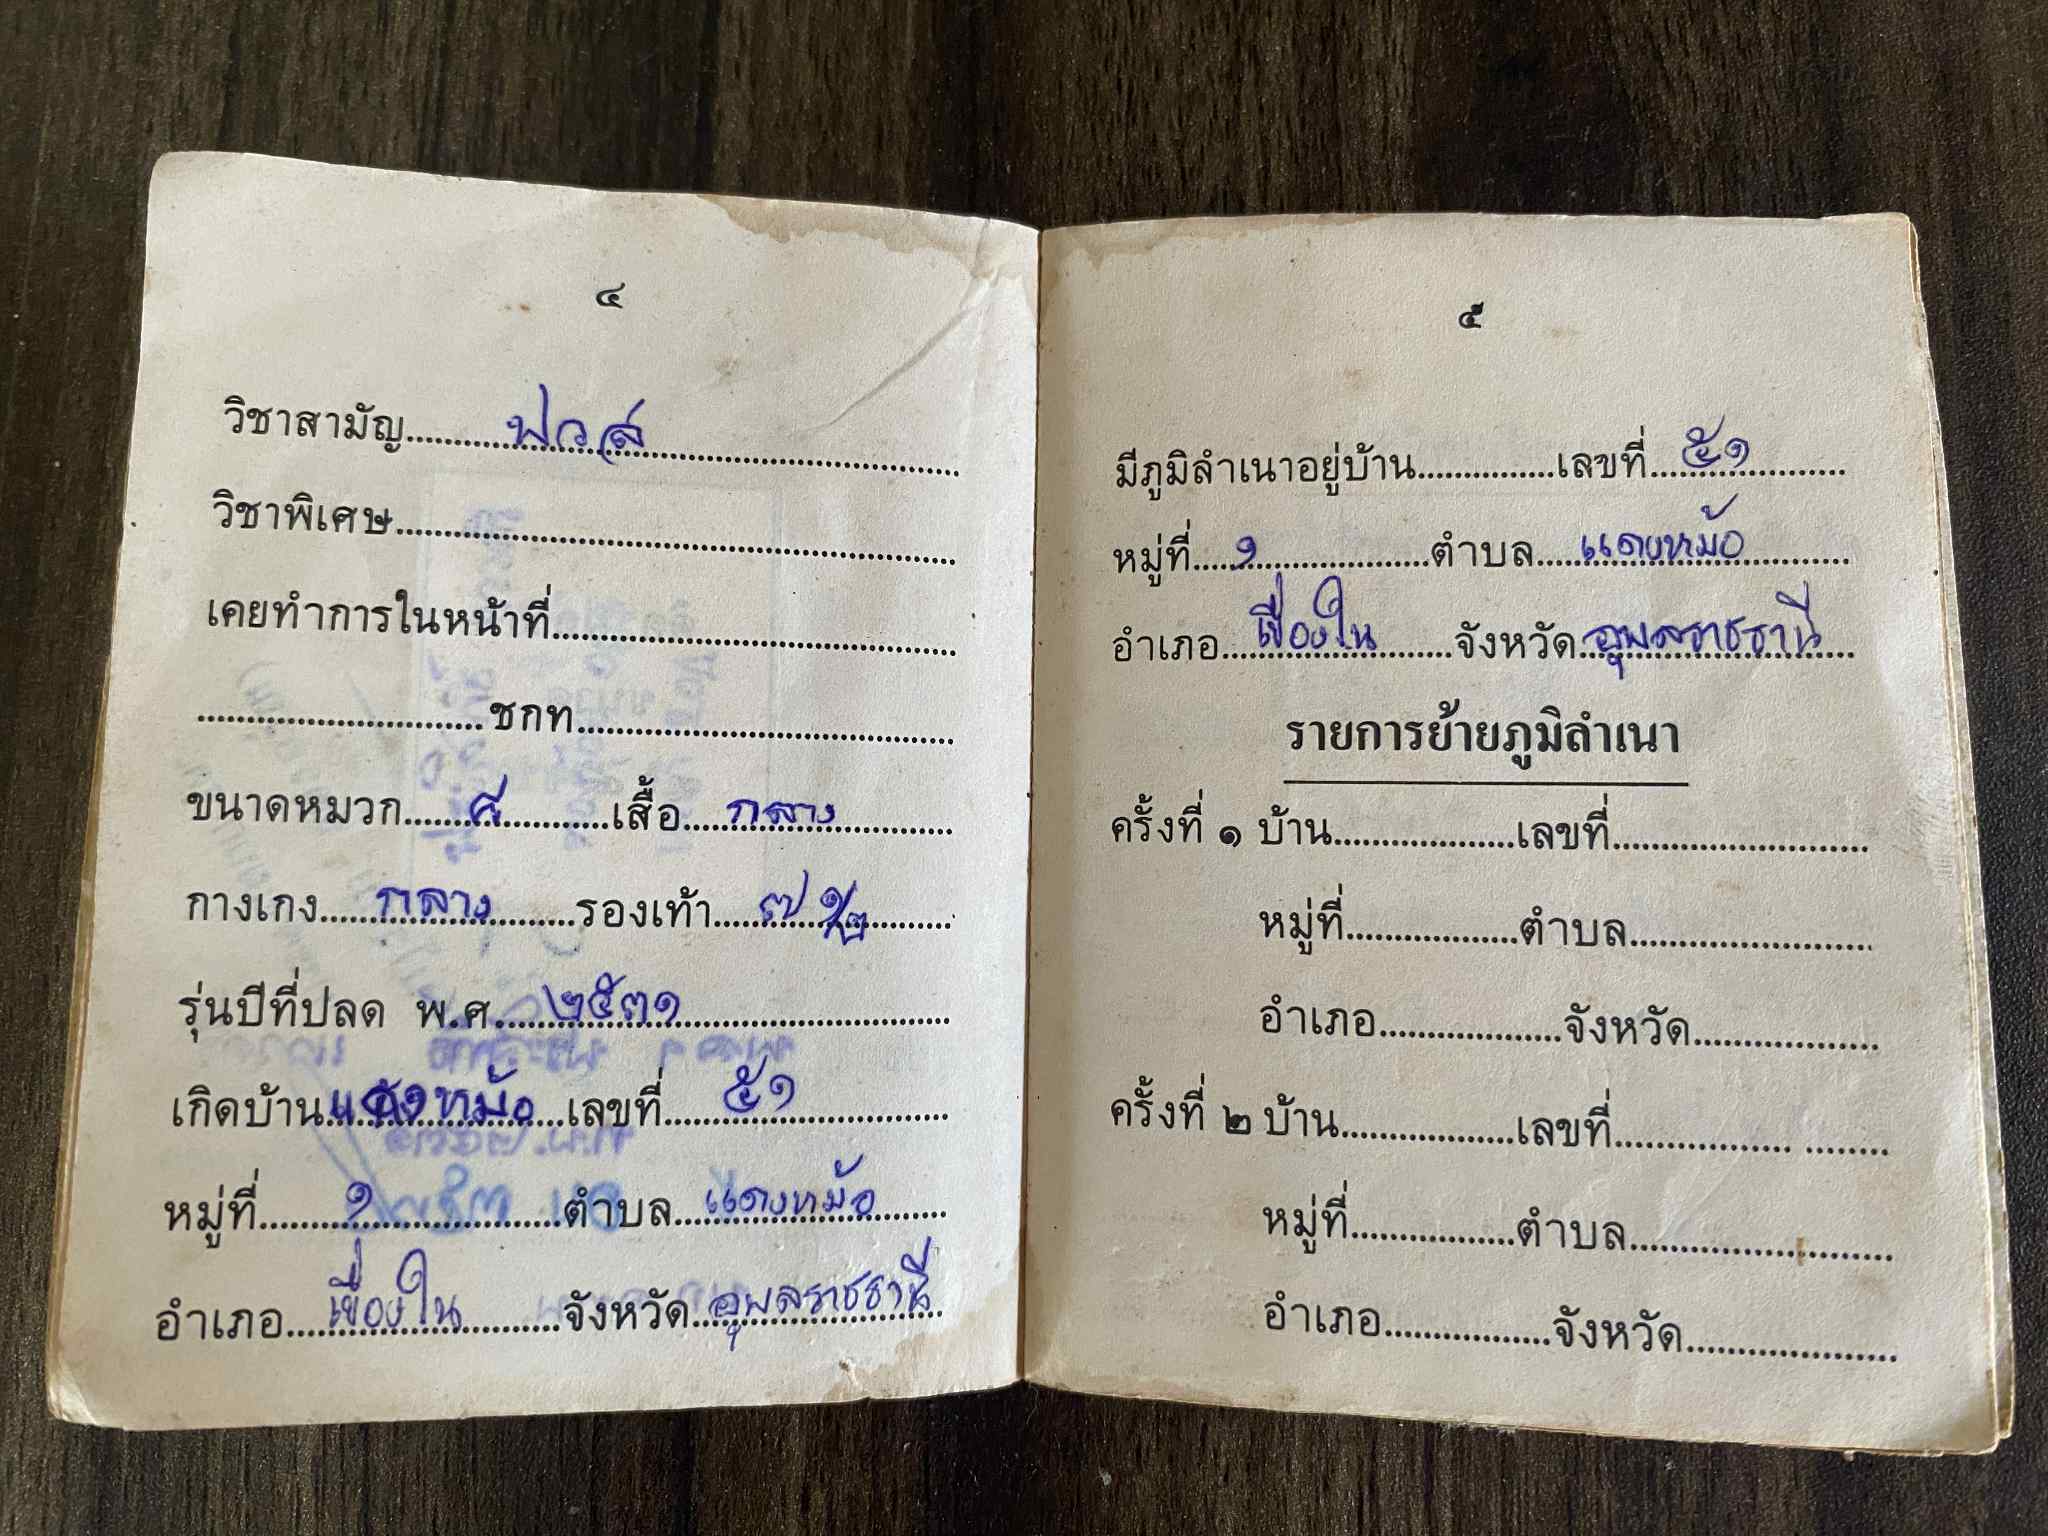 ๔
วิชาสามัญ ปวส
วิชาพิเศษ
เคยทำการในหน้าที่
ชกท
ขนาดหมวก เสื้อ กลาง
กางเกง กลาง รองเท้า ๗ ๑/๒
รุ่นปีที่ปลด พ.ศ. ๒๕๓๑
เกิดบ้าน แดงหม้อ เลขที่ ๕๑
หมู่ที่ ๑ ตำบล แดงหม้อ
อำเภอ เขื่องใน จังหวัด อุบลราชธานี
๕
มีภูมิลำเนาอยู่บ้าน เลขที่ ๕๑
หมู่ที่ ๑ ตำบล แดงหม้อ
อำเภอ เขื่องใน จังหวัด อุบลราชธานี
รายการย้ายภูมิลำเนา
ครั้งที่ ๑ บ้าน เลขที่
หมู่ที่ ตำบล
อำเภอ จังหวัด
ครั้งที่ ๒ บ้าน เลขที่
หมู่ที่ ตำบล
อำเภอ จังหวัด